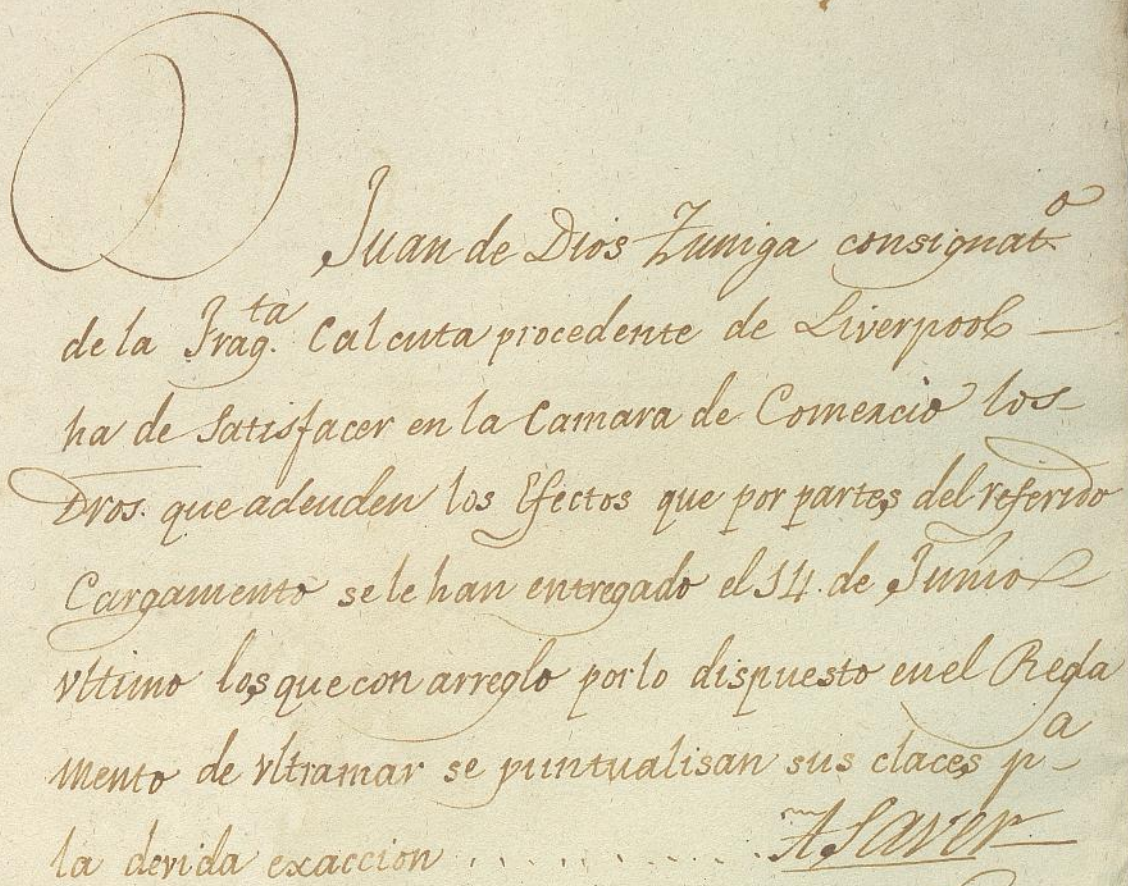 D Juan de Dios Zuniga consignat.º
de la Frag.ta Calcuta procedente de Liverpool
ha de Satisfacer en la Camara de Comercio los
Dros. que adeuden los Efectos que por partes del referido
Cargamento se le han entregado el 14. de Junio
vltimo los que con arreglo por lo dispuesto en el Regla
mento de vltramar se puntualisan sus claces p.a
la devida exaccion . . . . . . . . . . A Saver